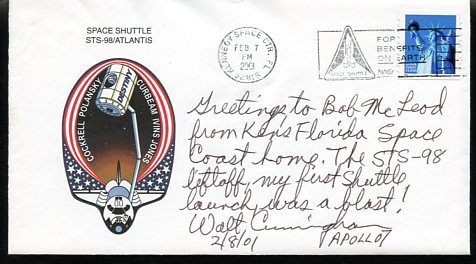 SPACE SHUTTLE
STS-98/ATLANTIS
COCKRELL POLANSKY
CURBEAM IVINS JONES
DESTINY
KENNEDY SPACE CTR, FL
FEB 7
PM
2001
32815
SPACE SHUTTLE
FOR
BENEFITS
ON EARTH
NASA
Greetings to Bob McLeod
from Ken's Florida Space
Coast home. The STS-98
liftoff, my first Shuttle
launch, was a blast!
Walt Cunningham
2/8/01 APOLLO 7